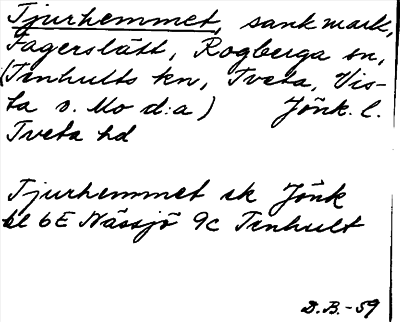 Tjurhemmet, sank mark,
Fagerslätt, Rogberga sn,
(Tenhults kn, Tveta, Vis-
ta o. Mo d:a) Jönk. l.
Tveta hd
Tjurhemmet ek Jönk
bl 6E Nässjö 9c Tenhult
D.B.-59